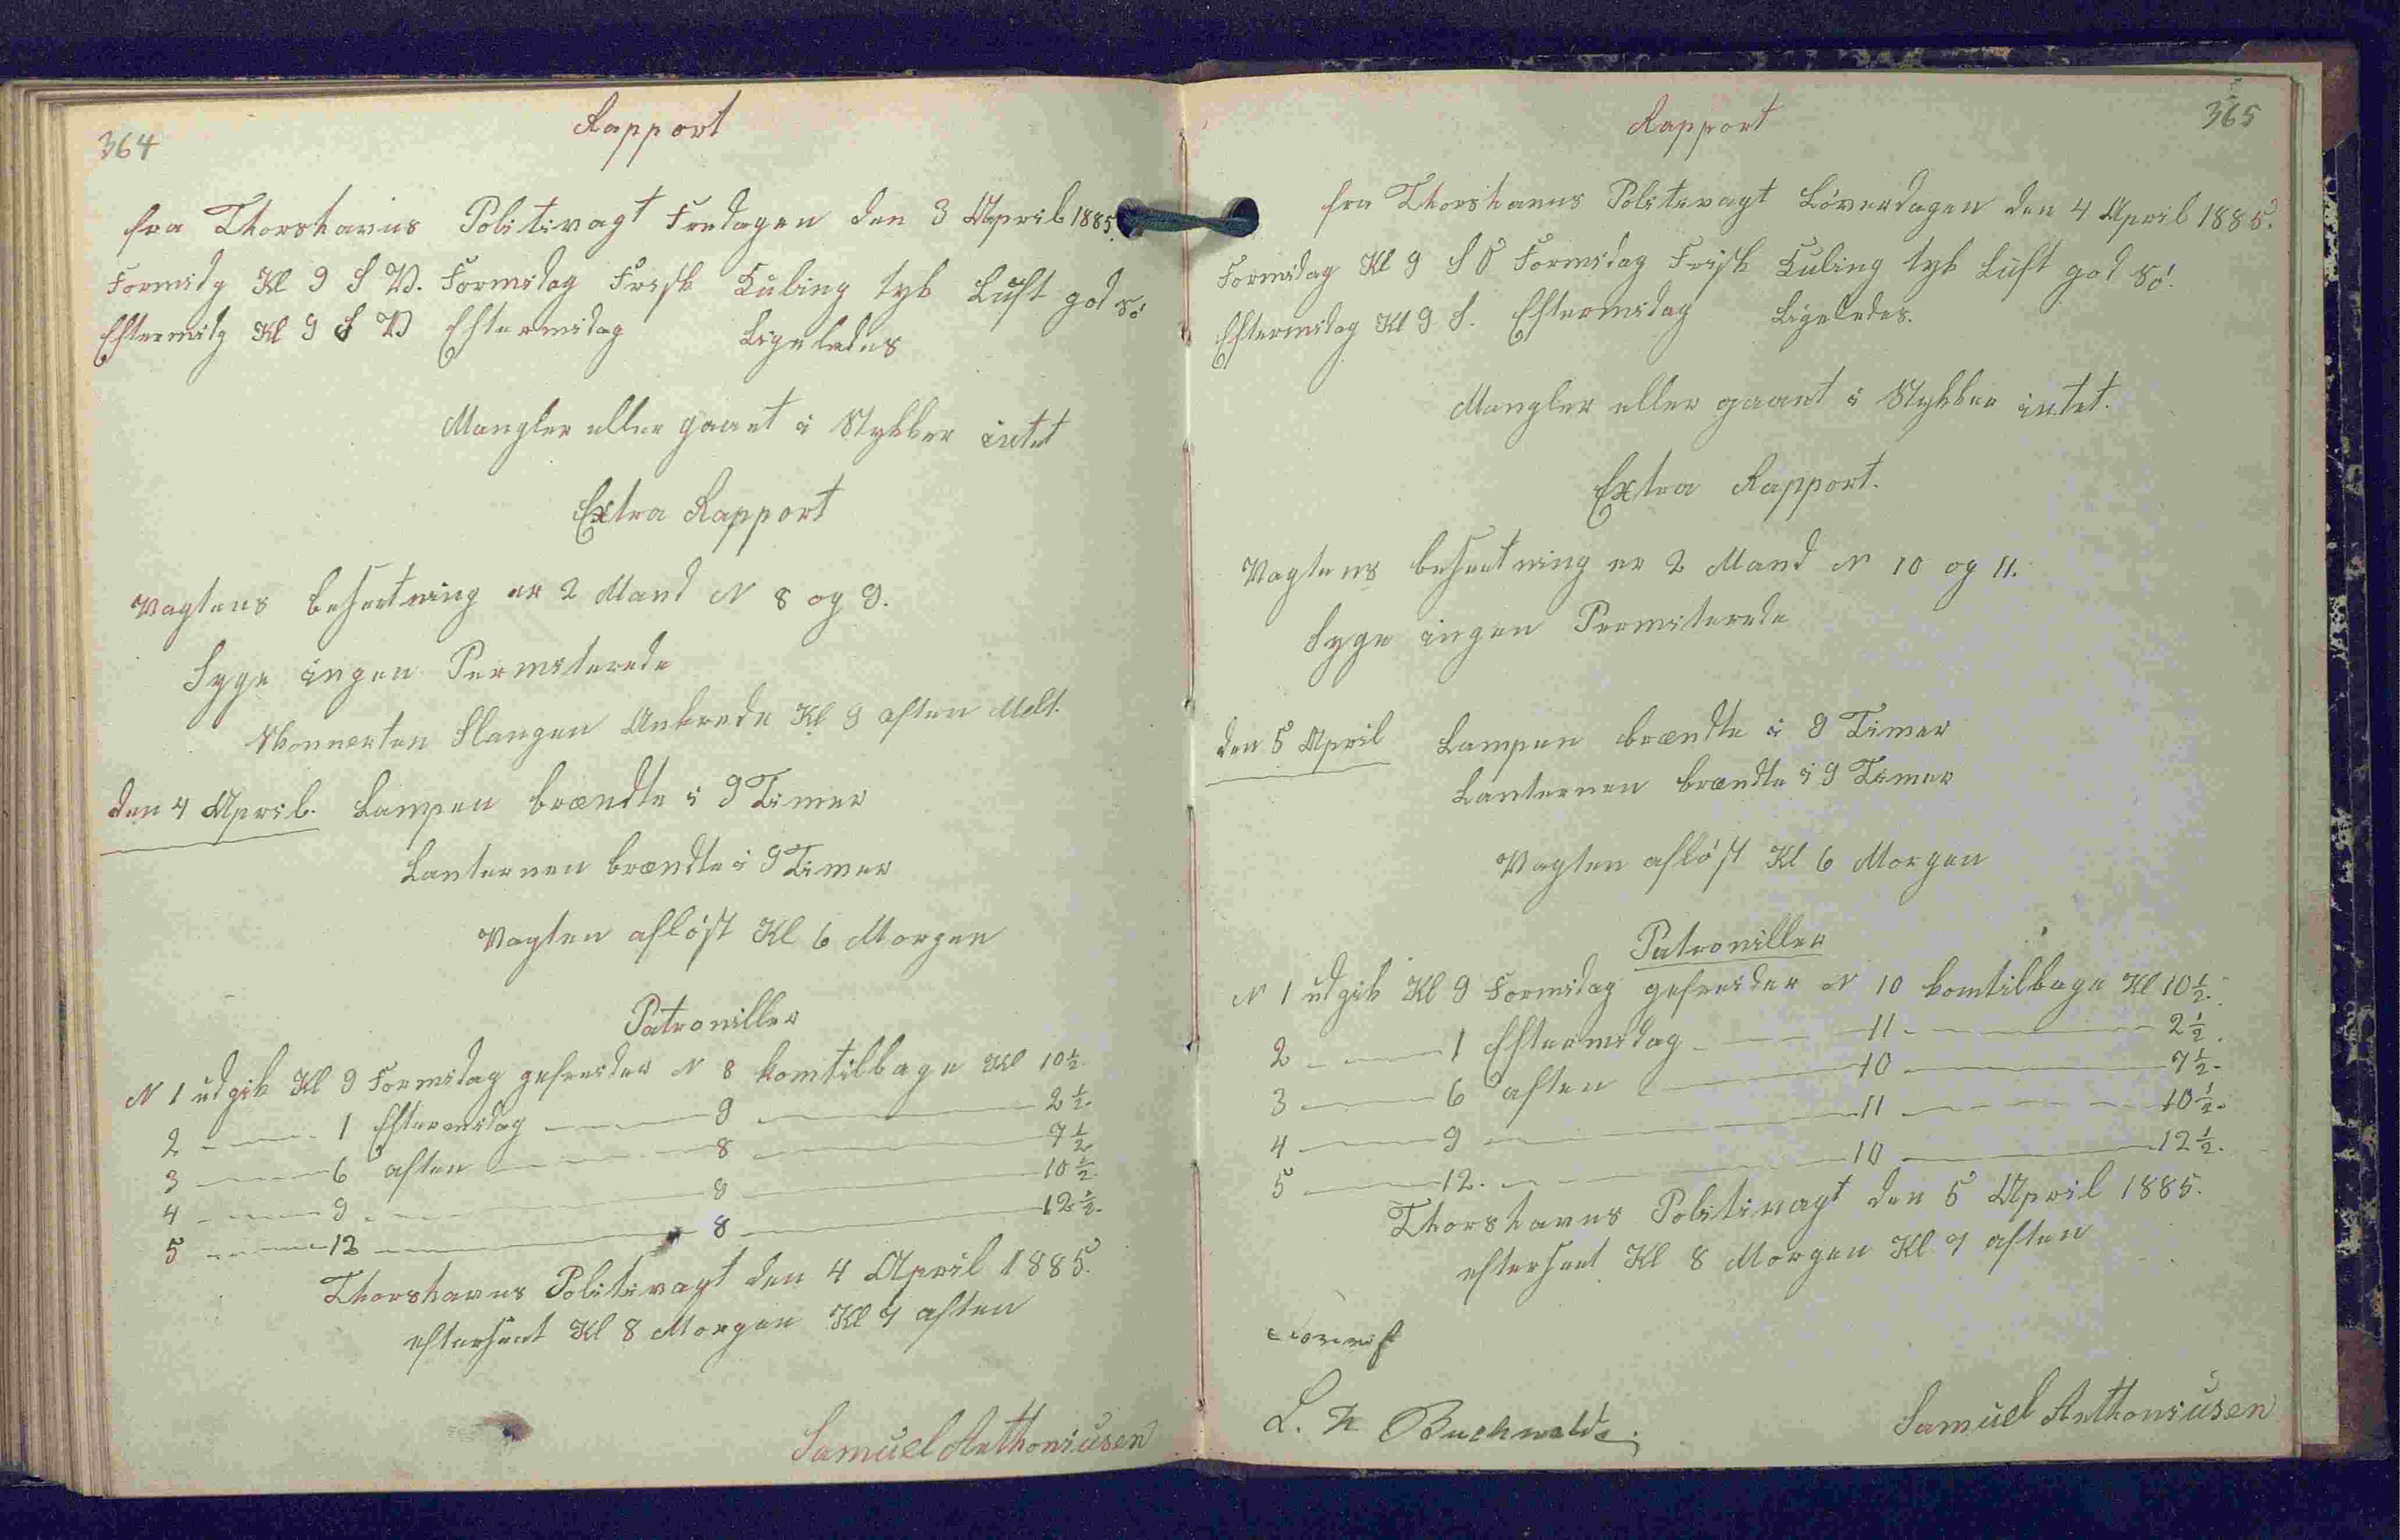 364
Rapport
fra Thorshavns Politivagt Fredagen den 3 April 1885.
Formidg Kl 9 S V. Formidag Frisk Kuling tyk Luft god Sø
Eftermidg Kl 9 S V Eftermidag Ligeledes
Mangler eller gaaet i Stykker intet
Extra Rapport
Vagtens besætning er 2 Mand N 8 og 9.
Syge ingen Permiterede
Skonnerten Slangen Ankrede Kl 9 aften Melt.
den 4 April. Lampen brændte i 9 Timer
Lanternen brændte i 9 Timer
Vagten afløst Kl 6 Morgen
Patroniller
N 1 udgik Kl 9 Formidag gefreider N 8 komtilbage Kl 10 1/2
2 — 1 Eftermidag — 9 — 2 1/2.
3 — 6 aften — 8 — 7 1/2
4 — 9 — 9 — 10 1/2.
5 — 12 — 8 — 12 1/2.
Thorshavns Politivagt den 4 April 1885.
efterseet Kl 8 Morgen Kl 7 aften
Samuel Anthoniusen
365
Rapport
fra Thorshavns Politivagt Løverdagen den 4 April 1885.
Formidag Kl 9 S O Formidag Frisk Kuling tyk Luft god Sø.
Eftermidag Kl 9 S. Eftermidag Ligeledes.
Mangler eller gaaet i Stykker intet.
Extra Rapport.
Vagtens besætning er 2 Mand N 10 og 11.
Syge ingen Permiterede
den 5 April Lampen brændte i 9 Timer
Lanternen brændte i 9 Timer
Vagten afløst Kl 6 Morgen
Patroniller
N 1 udgik Kl 9 Formidag gefreider N 10 komtilbage Kl 10 1/2.
2 — 1 Eftermidag — 11 — 2 1/2.
3 — 6 aften — 10 — 7 1/2.
4 — 9 — 11 — 10 1/2.
5 — 12. — 10 — 12 1/2.
Thorshavns Politivagt den 5 April 1885.
efterseet Kl 8 Morgen Kl 7 aften
L. Buchwaldt
Samuel Anthoniusen